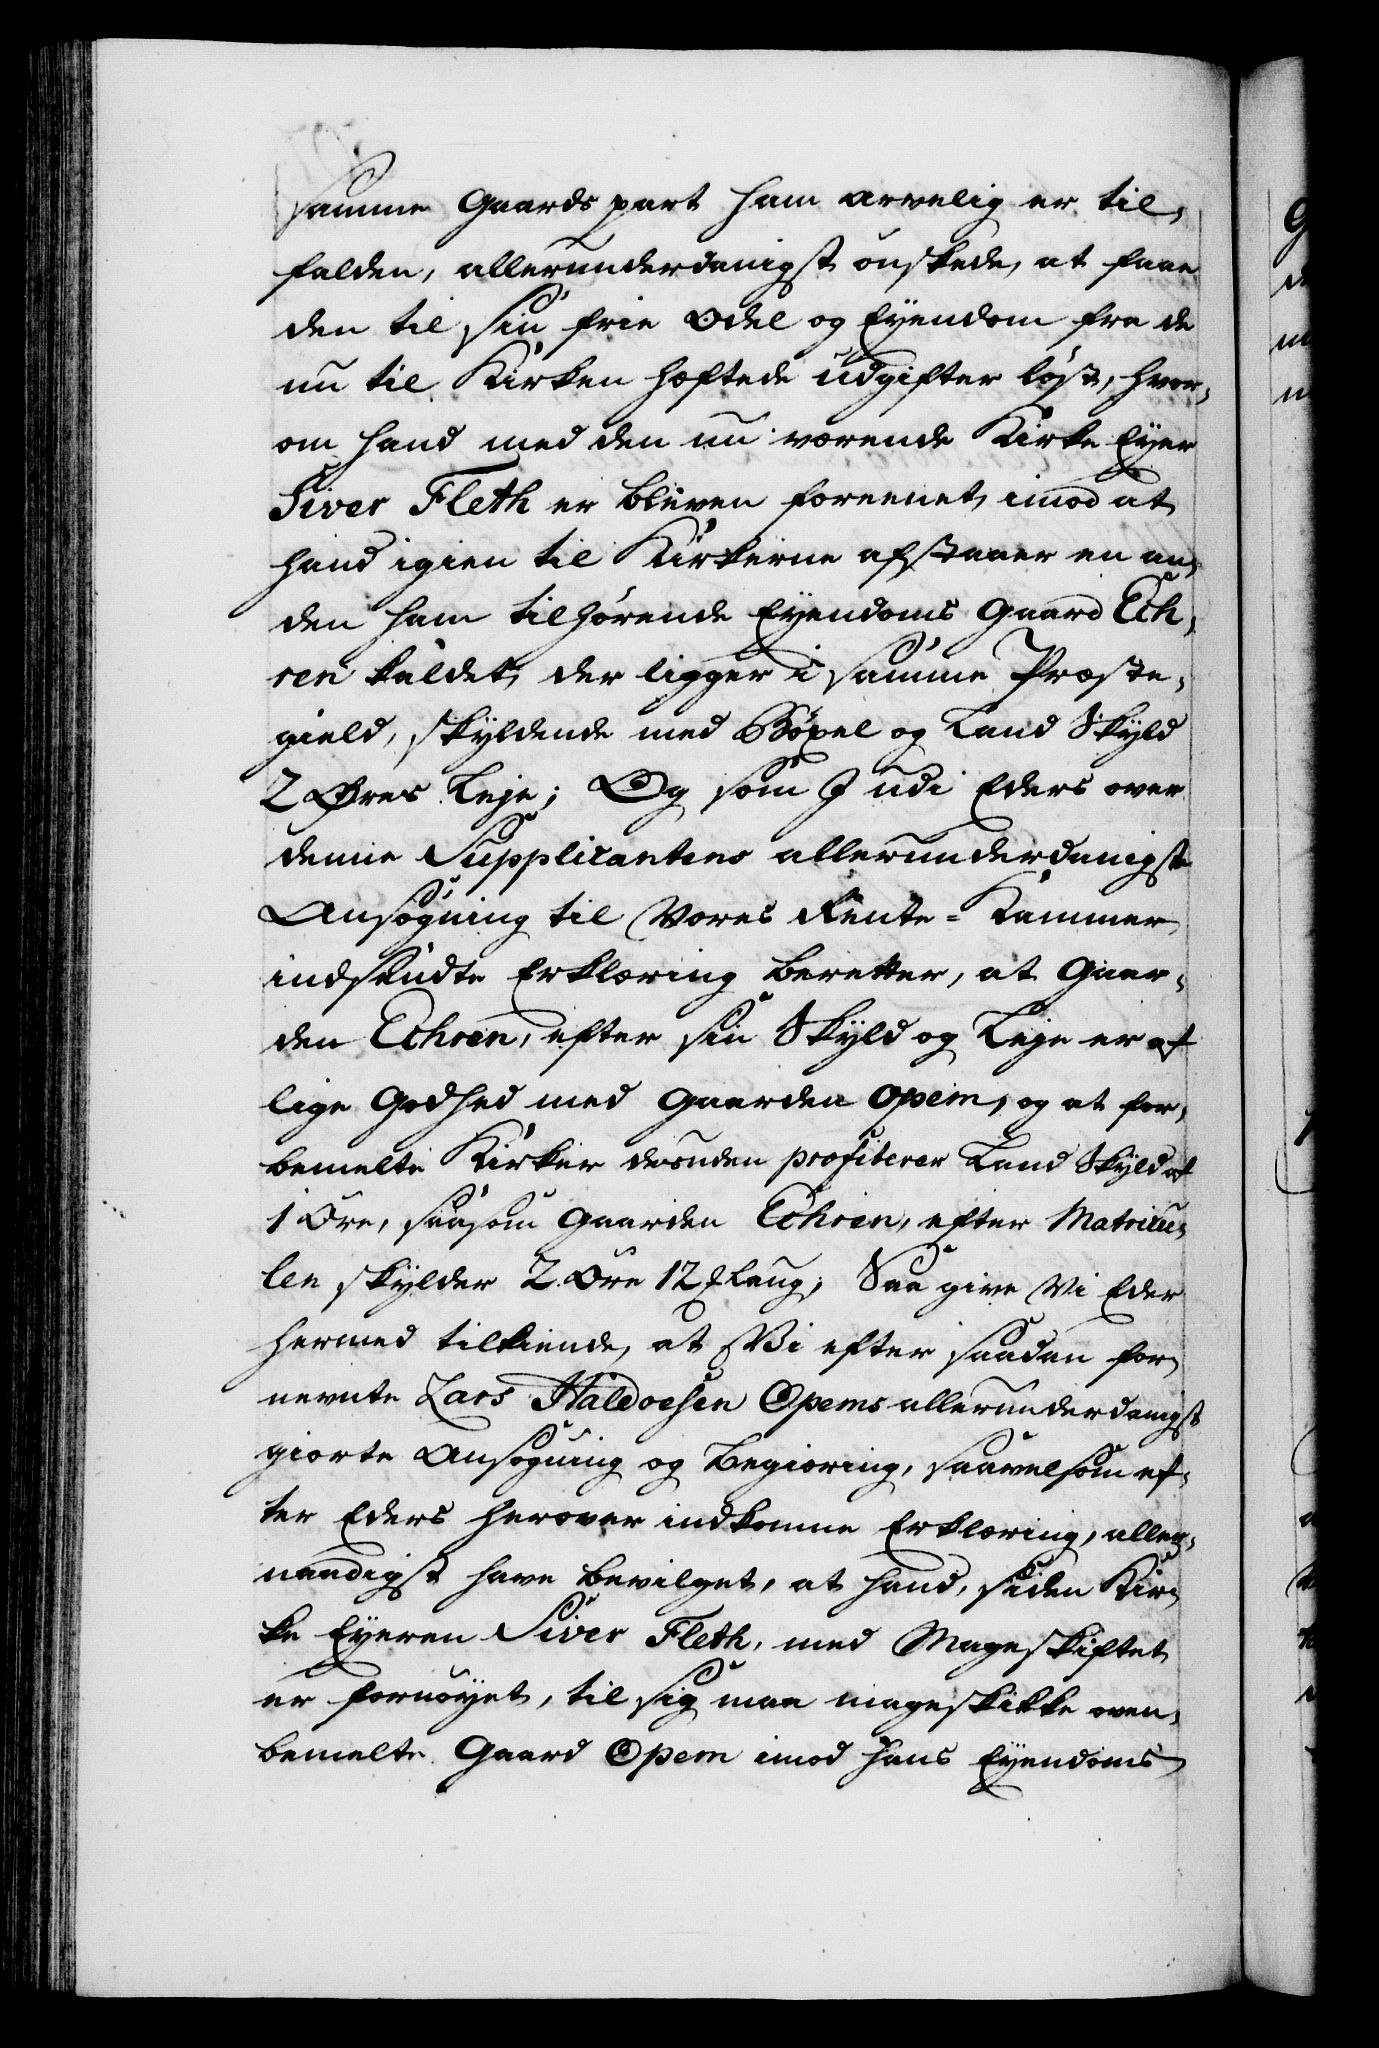 samme Gaards part ham arvelig er til,
falden, allerunderdanigst ønskede, at faae
den til sin frie Odel og Eyendom fra de
nu til Kirken hæftede udgifter løst, hvor,
om hand med den nu værende Kirke Eyer
Siver Fleth er bleven foreenet, imod at
hand igien til Kirkerne afstaaer en an,
den ham tilhørende Eyendoms Gaard Ech,
ren kaldet, der ligger i samme Præste,
gield, skyldende med Bøxel og Land Skyld
2 Øres Leje; Og som I udi Eders over
denne Supplicantens allerunderdanigste
Ansøgning til Vores Rente-Kammer
indsendte Erklæring beretter, at Gaar,
den Echren, efter sin Skyld og Leje er af
lige Godhed med Gaarden Opem, og at for,
bemelte Kirker desuden profiterer Land Skyld af
1 Øre, saasom Gaarden Echren, efter Matricu,
len skylder 2 Øre 12 Laug; Saa give Vi Eder
hermed tilkiende, at Vi efter saadan for,
nevnte Lars Haldorsen Opems allerunderdanigst
giorte Ansøgning og Begiæring, saavelsom ef,
ter Eders herover indkomne Erklæring, aller,
naadigst have bevilget, at hand, siden Kir,
ke Eyeren Siver Fleth, med Mageskiftet
er fornøyet, til sig maa mageskikke oven,
bemelte Gaard Opem imod hans Eyendoms